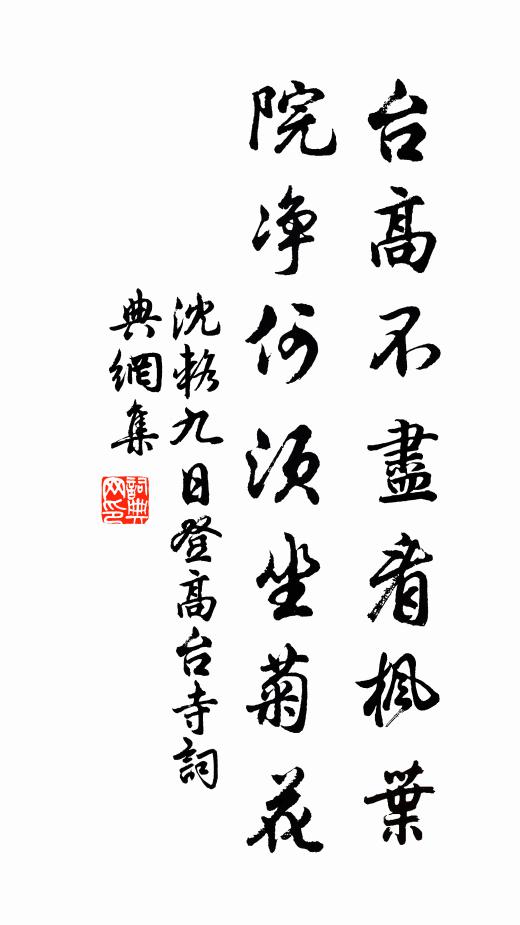 台高不盡看楓葉
院净何須坐菊花
沈彬九日登高台寺詞
典網集
詞典
网印